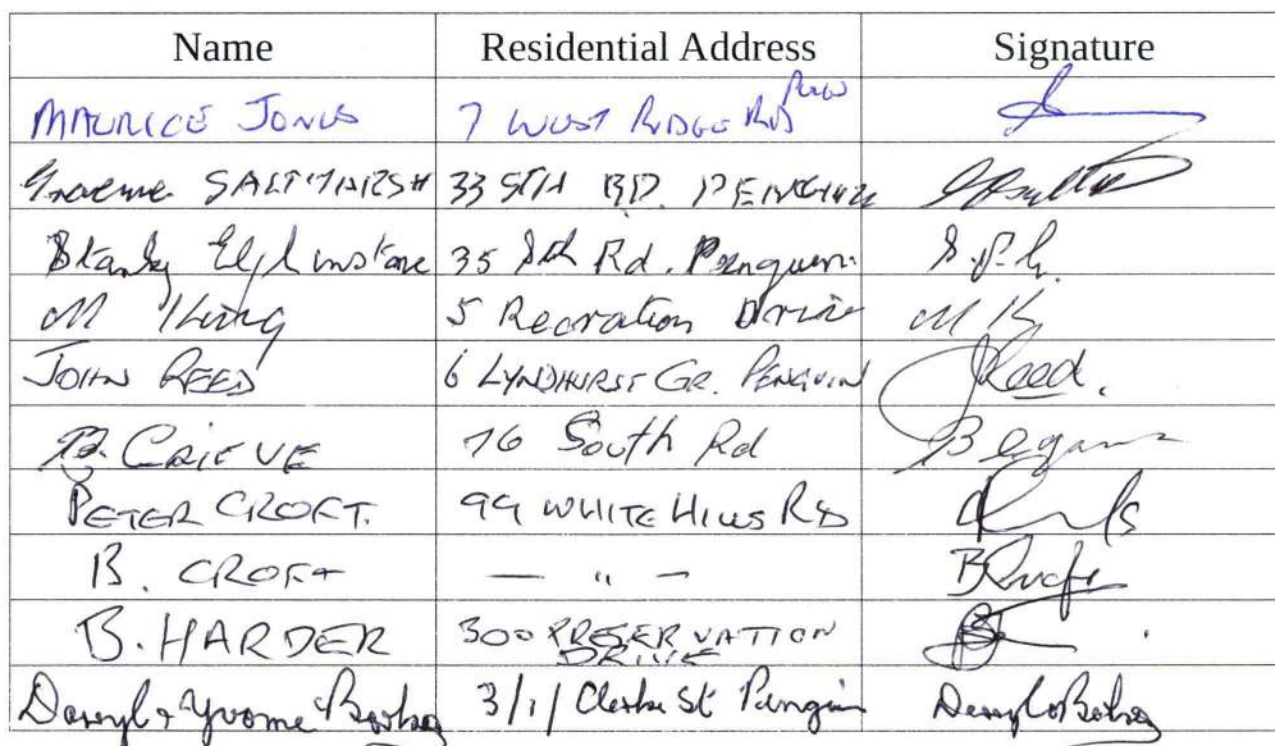 Name Residential Address Signature
MAURICE JONES 7 WEST RIDGE RD
Graeme SALTMARSH 33 5TH RD. PENGUIN
Stanley Elphinstone 35 5th Rd. Penguin S.P.E.
M King 5 Recration Drive M K
JOHN REED 6 LYNDHURST GR. PENGUIN JReed.
B. GRIEVE 76 South Rd
PETER CROFT. 99 WHITE HILLS RD
B. CROFT — " —
B. HARDER 300 PRESERVATION
DRIVE
Darryl & Yvonne 3/1/ Clerke St Penguin